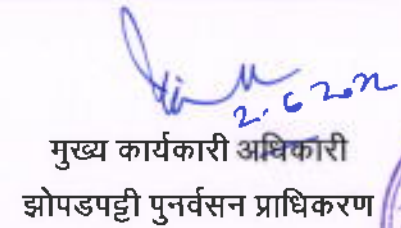 2.6.2022
मुख्य कार्यकारी अधिकारी
झोपडपट्टी पुनर्वसन प्राधिकरण